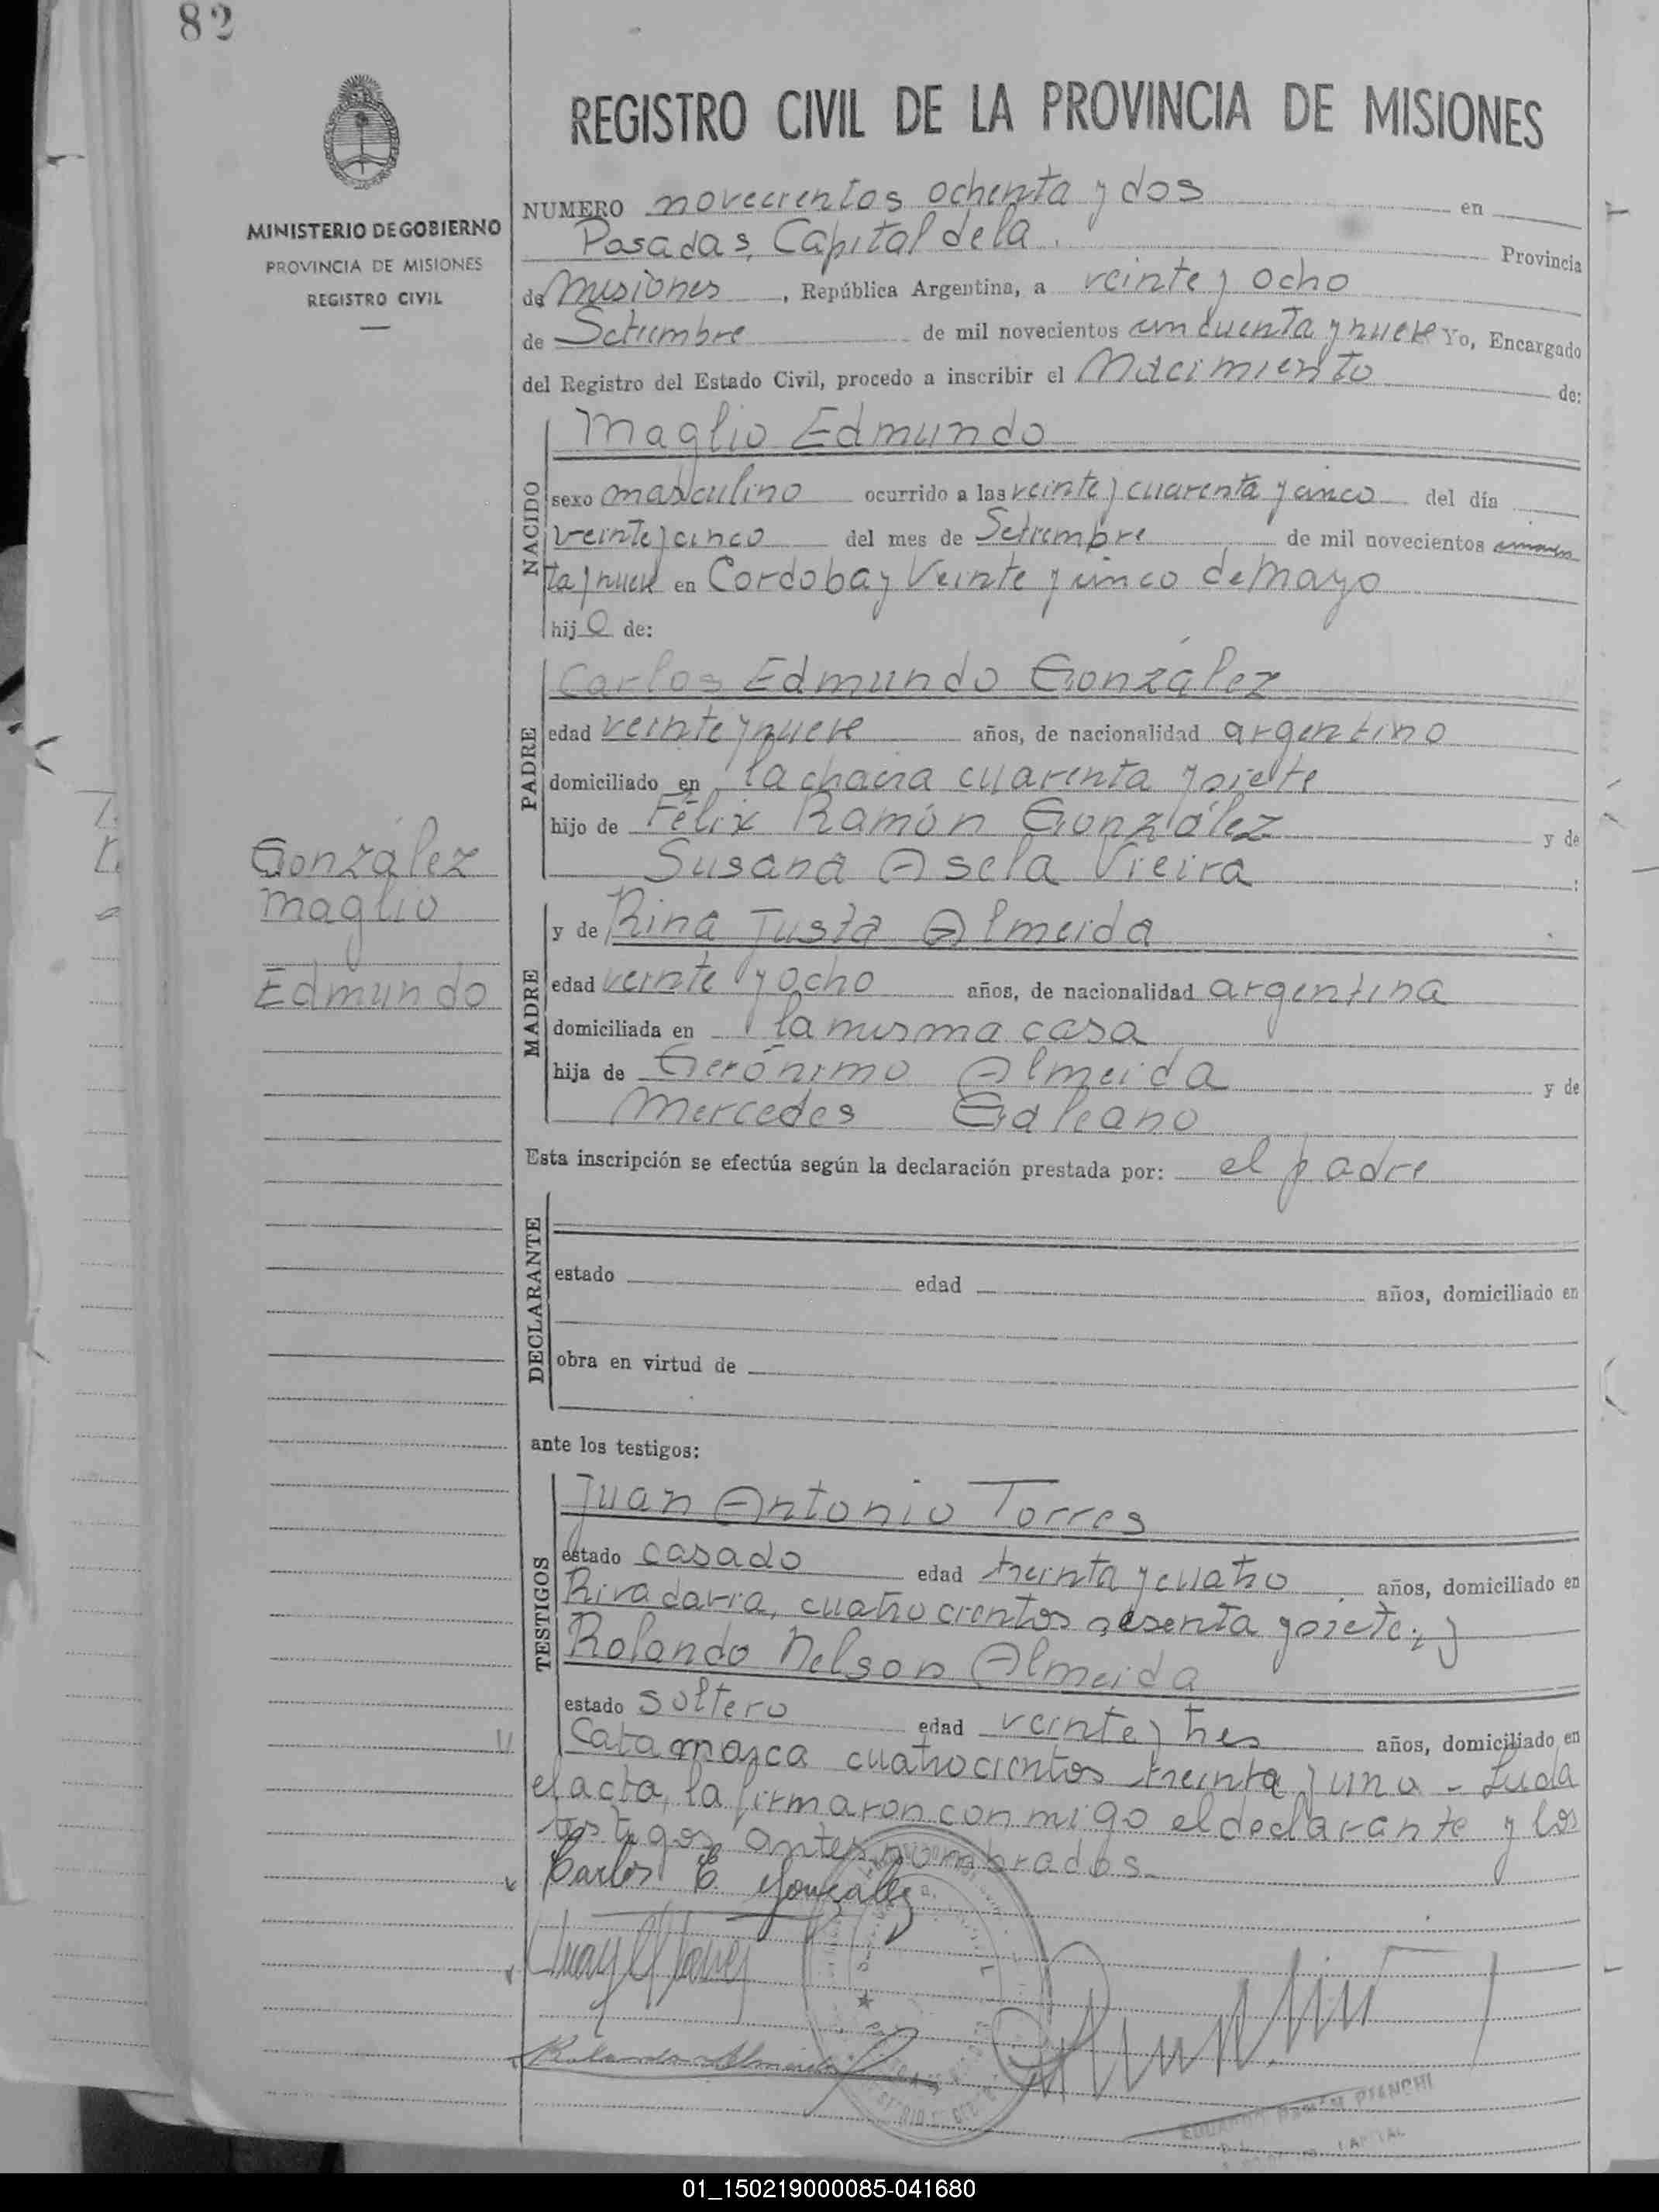 82
MINISTERIO DE GOBIERNO
PROVINCIA DE MISIONES
REGISTRO CIVIL
REGISTRO CIVIL DE LA PROVINCIA DE MISIONES
NUMERO novecientos ochenta y dos en
Posadas, Capital de la Provincia
de Misiones, República Argentina, a veinte y ocho
de Setiembre de mil novecientos cincuenta y nueve Yo, Encargado
del Registro del Estado Civil, procedo a inscribir el Nacimiento de:
NACIDO
Maglio Edmundo
sexo masculino ocurrido a las veinte y cuarenta y cinco del día
veinte y cinco del mes de Setiembre de mil novecientos
ta y nueve en Cordoba y Veinte y cinco de Mayo
hijo de:
PADRE
Carlos Edmundo González
edad veinte y nueve años, de nacionalidad argentino
domiciliado en la chacra cuarenta y siete
hijo de Félix Ramón González y de
Susana Asela Vieira
González
Maglio
Edmundo
MADRE
y de Rina Justa Almeida
edad veinte y ocho años, de nacionalidad argentina
domiciliada en la misma casa
hija de Gerónimo Almeida y de
Mercedes Galeano
Esta inscripción se efectúa según la declaración prestada por: el padre
DECLARANTE
estado edad años, domiciliado en
obra en virtud de
ante los testigos:
TESTIGOS
Juan Antonio Torres
estado casado edad treinta y cuatro años, domiciliado en
Rivadavia, cuatrocientos sesenta y siete; y
Rolando Nelson Almeida
estado soltero edad veinte y tres años, domiciliado en
Catamarca cuatrocientos treinta y uno - Leida
el acta, la firmaron conmigo el declarante y los
testigos antes nombrados.
Carlos E. González
Rolando Almeida
BIANCHI
01_150219000085-041680